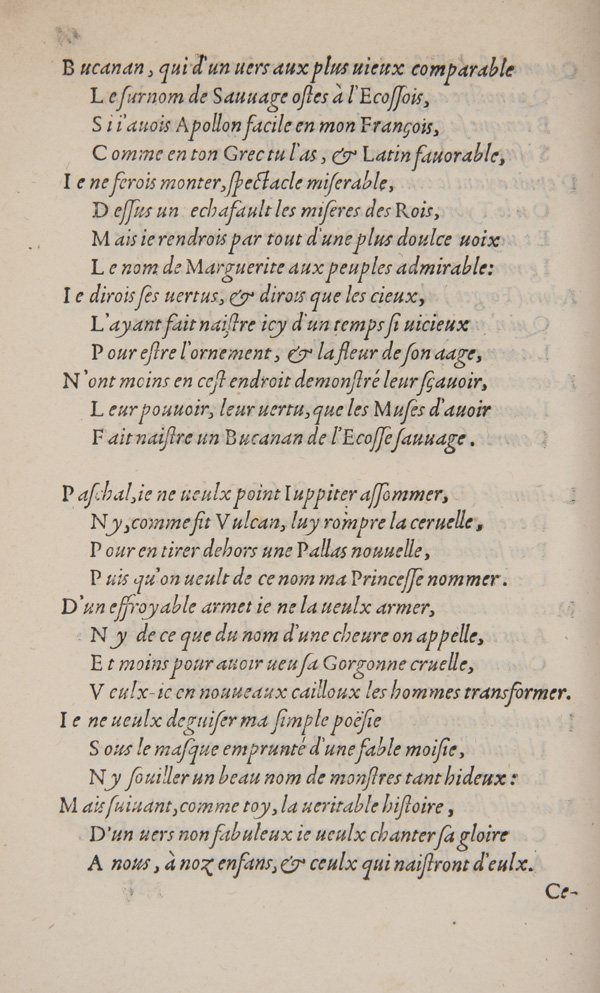 Bucanan, qui d'un uers aux plus uieux comparable
Le ſurnom de Sauuage oſtes à l'Ecoſſois,
Si i'auois Apollon facile en mon François,
Comme en ton Grec tu l'as, & Latin fauorable,
Ie ne ferois monter, ſpectacle miſerable,
Deſſus un echafault les miſeres des Rois,
Mais ie rendrois par tout d'une plus doulce uoix
Le nom de Marguerite aux peuples admirable:
Ie dirois ſes uertus, & dirois que les cieux,
L'ayant fait naiſtre icy d'un temps ſi uicieux
Pour eſtre l'ornement, & la fleur de ſon aage,
N'ont moins en ceſt endroit demonſtré leur ſçauoir,
Leur pouuoir, leur uertu, que les Muſes d'auoir
Fait naiſtre un Bucanan de l'Ecoſſe ſauuage.
Paſchal, ie ne ueulx point Iuppiter aſſommer,
Ny, comme fit Vulcan, luy rompre la ceruelle,
Pour en tirer dehors une Pallas nouuelle,
Puis qu'on ueult de ce nom ma Princeſſe nommer.
D'un effroyable armet ie ne la ueulx armer,
Ny de ce que du nom d'une cheure on appelle,
Et moins pour auoir ueu ſa Gorgonne cruelle,
Veulx-ie en nouueaux cailloux les hommes transformer.
Ie ne ueulx deguiſer ma ſimple poëſie
Sous le maſque emprunté d'une fable moiſie,
Ny ſouiller un beau nom de monſtres tant hideux:
Mais ſuiuant, comme toy, la ueritable hiſtoire,
D'un uers non fabuleux ie ueulx chanter ſa gloire
A nous, à noz enfans, & ceulx qui naiſtront d'eulx.
Ce-